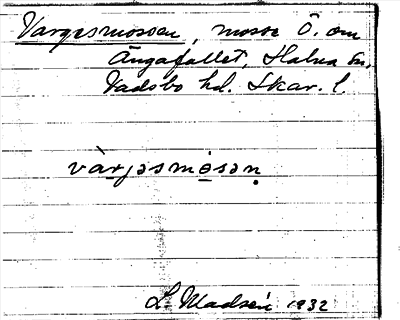 Vargesmossen, mosse Ö. om
Ängafallet, Halna sn,
Vadsbo hd. Skar. l.
vàrgəsmósən̥
L. Madsén 1932